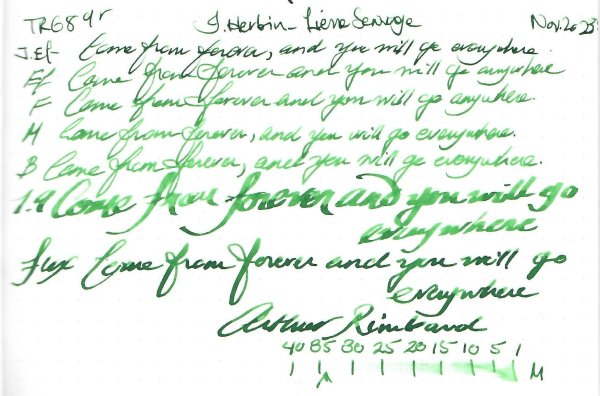 TR689r J. Herbin - Lierre Sauvage Nov. 2023
J. Ef- Come from forever, and you will go everywhere.
Ef Come from forever and you will go anywhere
F Come from forever and you will go anywhere.
M Come from forever, and you will go everywhere.
B Come from forever, and you will go everywhere.
1.9 Come from forever and you will go
everywhere
Flex Come from forever and you will go
everywhere
Arthur Rimbaud
40 35 30 25 20 15 10 5 1
M